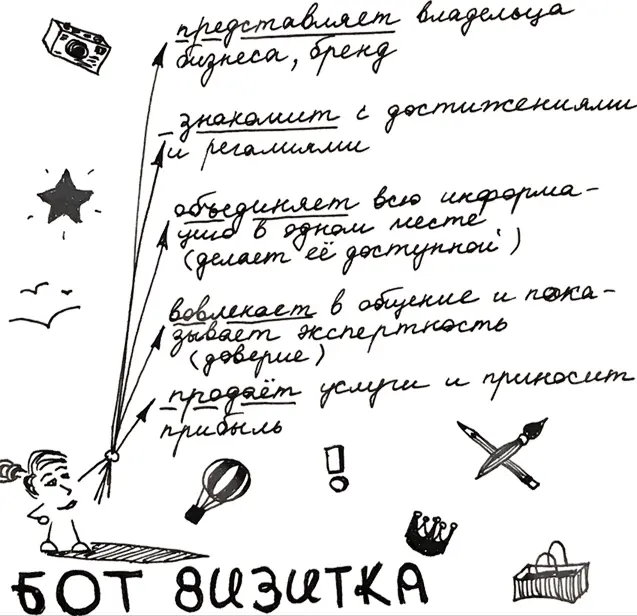 представляет владельца
бизнеса, бренд
знакомит с достижениями
и регалиями
объединяет всю информа-
цию в одном месте
(делает её доступной)
вовлекает в общение и пока-
зывает экспертность
(доверие)
продаёт услуги и приносит
прибыль
!
БОТ ВИЗИТКА